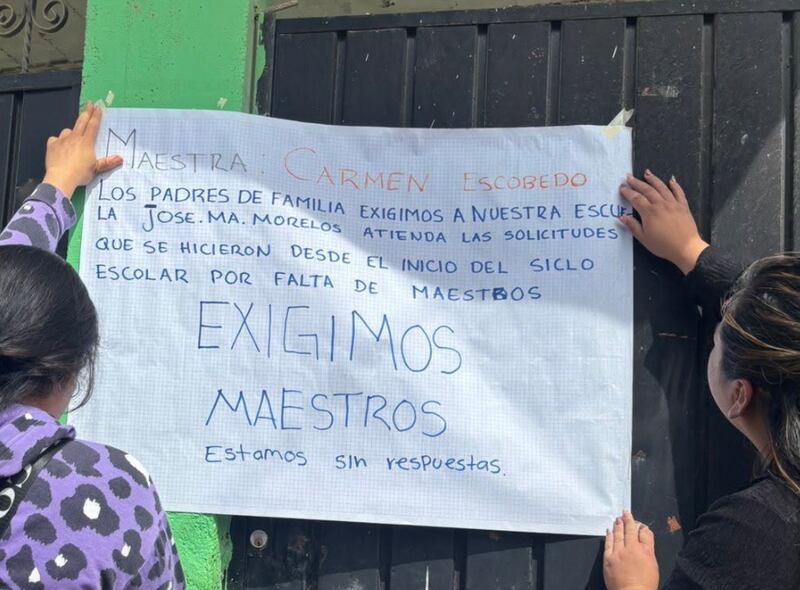 MAESTRA: CARMEN ESCOBEDO
LOS PADRES DE FAMILIA EXIGIMOS A NUESTRA ESCUE
LA JOSE.MA.MORELOS ATIENDA LAS SOLICITUDES
QUE SE HICIERON DESDE EL INICIO DEL SICLO
ESCOLAR POR FALTA DE MAESTROS
EXIGIMOS
MAESTROS
Estamos sin respuestas.